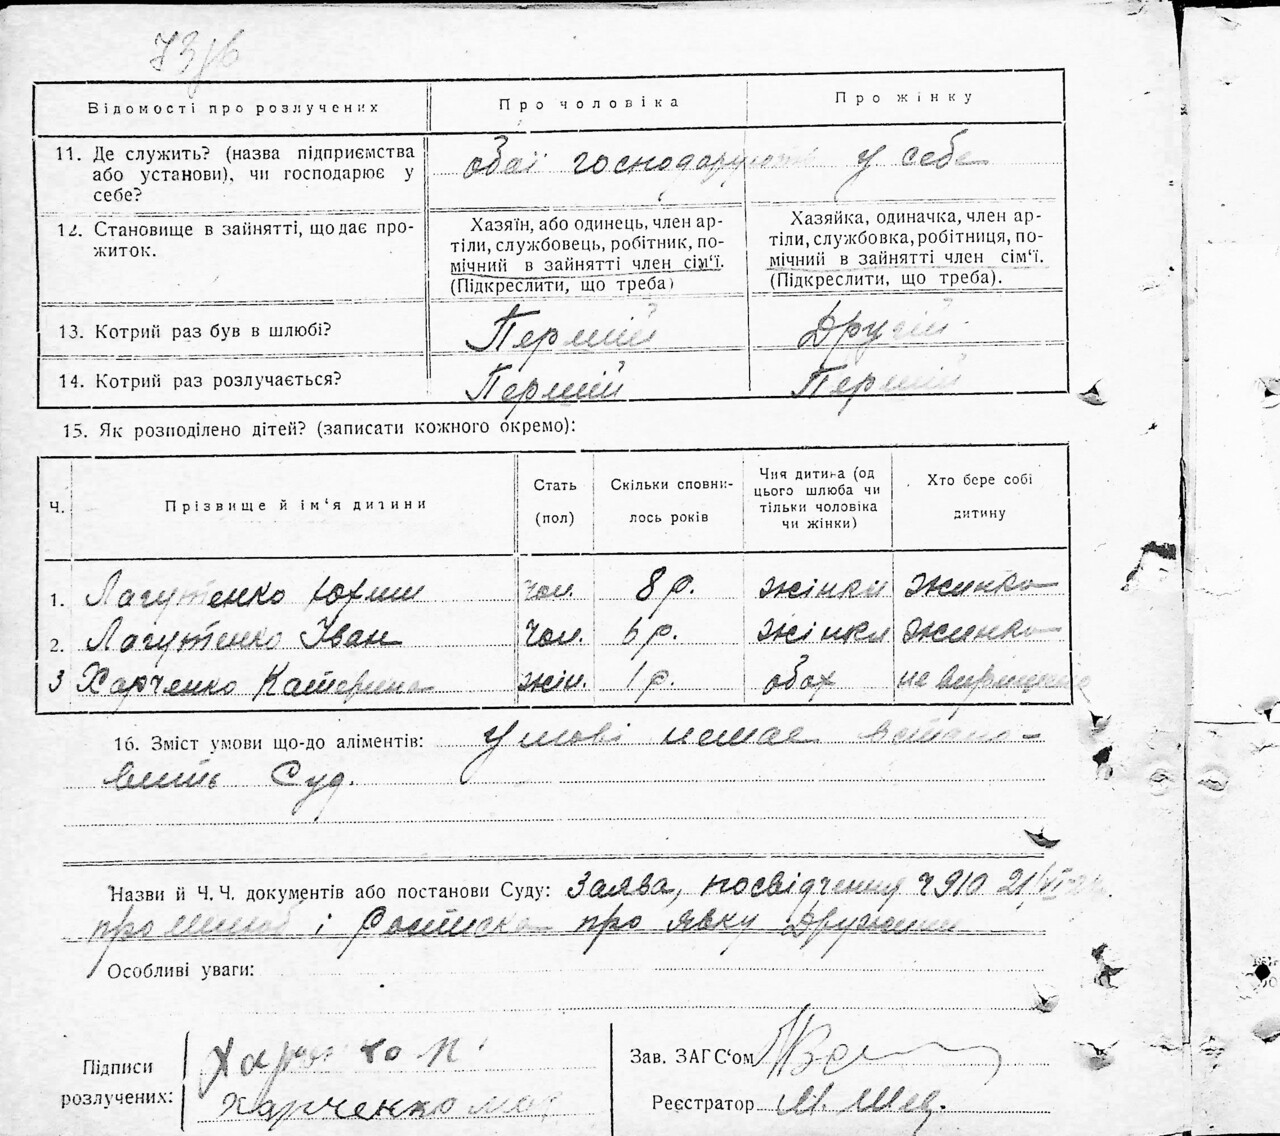 Відомості про розлучених
Про чоловіка
Про жінку
11. Де служить? (назва підприємства
або установи), чи господарює у
себе?
обаї господарують у себе
12. Становище в зайнятті, що дає про-
житок.
Хазяїн, або одинець, член ар-
тіли, службовець, робітник, по-
мічний в зайнятті член сім'ї.
(Підкреслити, що треба)
Хазяйка, одиначка, член ар-
тіли, службовка, робітниця, по-
мічний в зайнятті член сім'ї.
(Підкреслити, що треба).
13. Котрий раз був в шлюбі?
Перший
Другій
14. Котрий раз розлучається?
Перший
Перший
15. Як розподілено дітей? (записати кожного окремо):
Ч.
Прізвище й ім'я дитини
Стать
(пол)
Скільки сповни-
лось років
Чия дитина (од
цього шлюба чи
тільки чоловіка
чи жінки)
Хто бере собі
дитину
1. Лагутенко Юхим чол. 8 р. жінки жинка
2. Лагутенко Іван чол. 6 р. жінки жинка
3 Харченко Катерина жін. 1 р. обох не вирішено
16. Зміст умови що-до аліментів: Умові немає встано-
вить Суд.
Назви й Ч. Ч. документів або постанови Суду: Заява, посвідчення ч 910 21/VI
про шлюб і Росписка про явку Дружини
Особливі уваги:
Підписи
розлучених:
Харченко
Харченко
Зав. ЗАГС'ом
Реєстратор М. Шед.